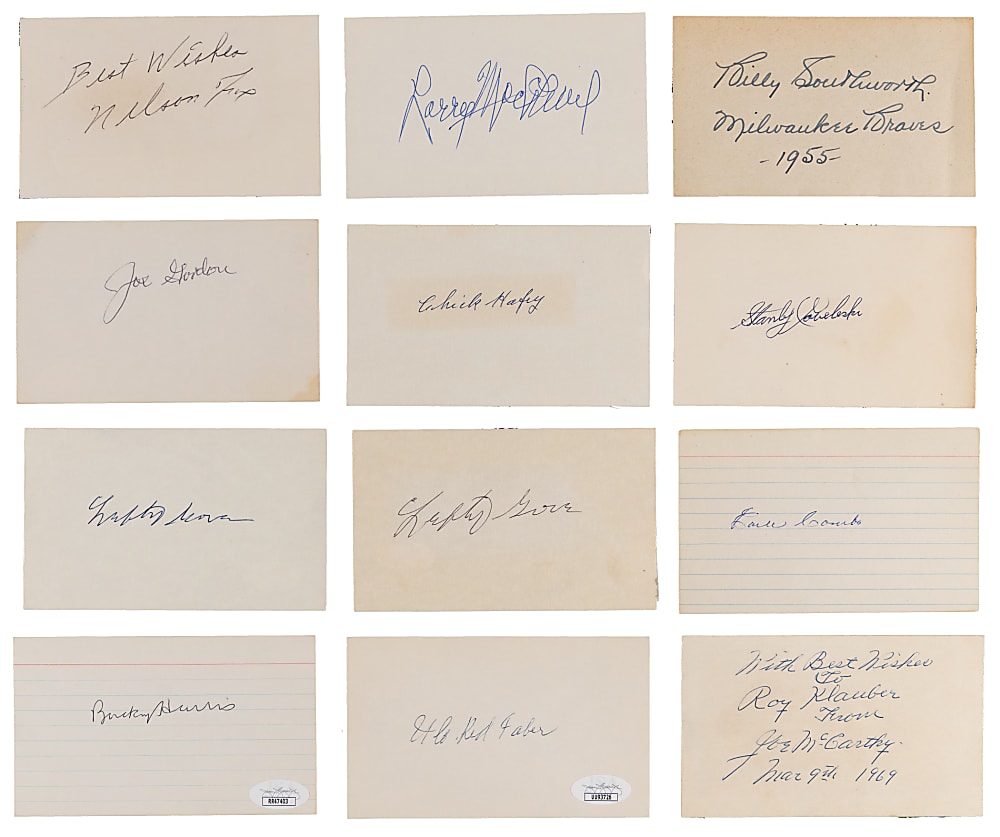 Best Wishes
Nelson Fox
Larry MacPhail
Billy Southworth.
Milwaukee Braves
-1955-
Joe Gordon
Chick Hafey
Stanley Coveleski
Lefty Gomez
Lefty Grove
Earle Combs
Bucky Harris
RR47403
Red Faber
UU93726
With Best Wishes
To
Roy Klauber
From
Joe McCarthy.
Mar 9th 1969